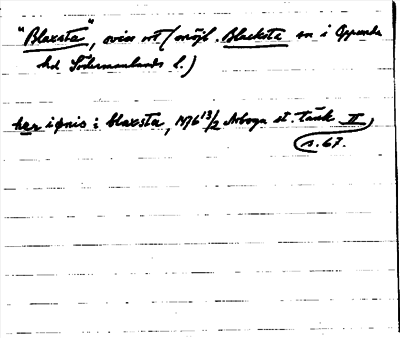 "Blaxsta", oviss ort (möjl. Blacksta sn i Oppunda
hd Södermanlands l.)
her iønis i blaxsta, 1476 13/2 Arboga st. tänk II
s. 67.